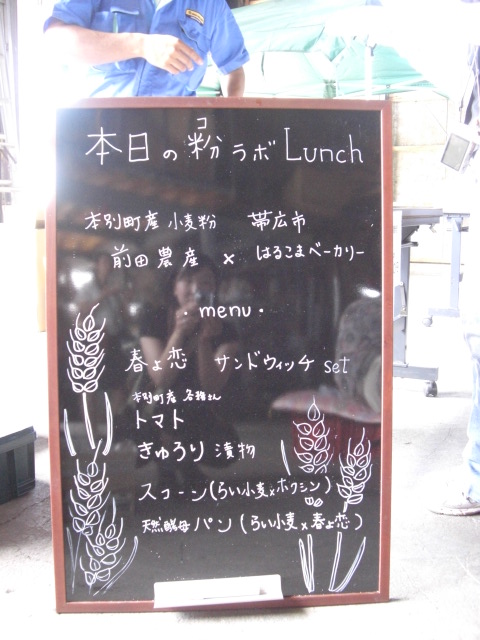 本日の粉ラボ Lunch
コ
本別町産 小麦粉 帯広市
前田農産 × はるこまベーカリー
・menu・
春よ恋 サンドウィッチ set
本別町産
トマト
きゅうり 漬物
スコーン(らい小麦×ホクシン)
天然酵母パン(らい小麦×春よ恋)